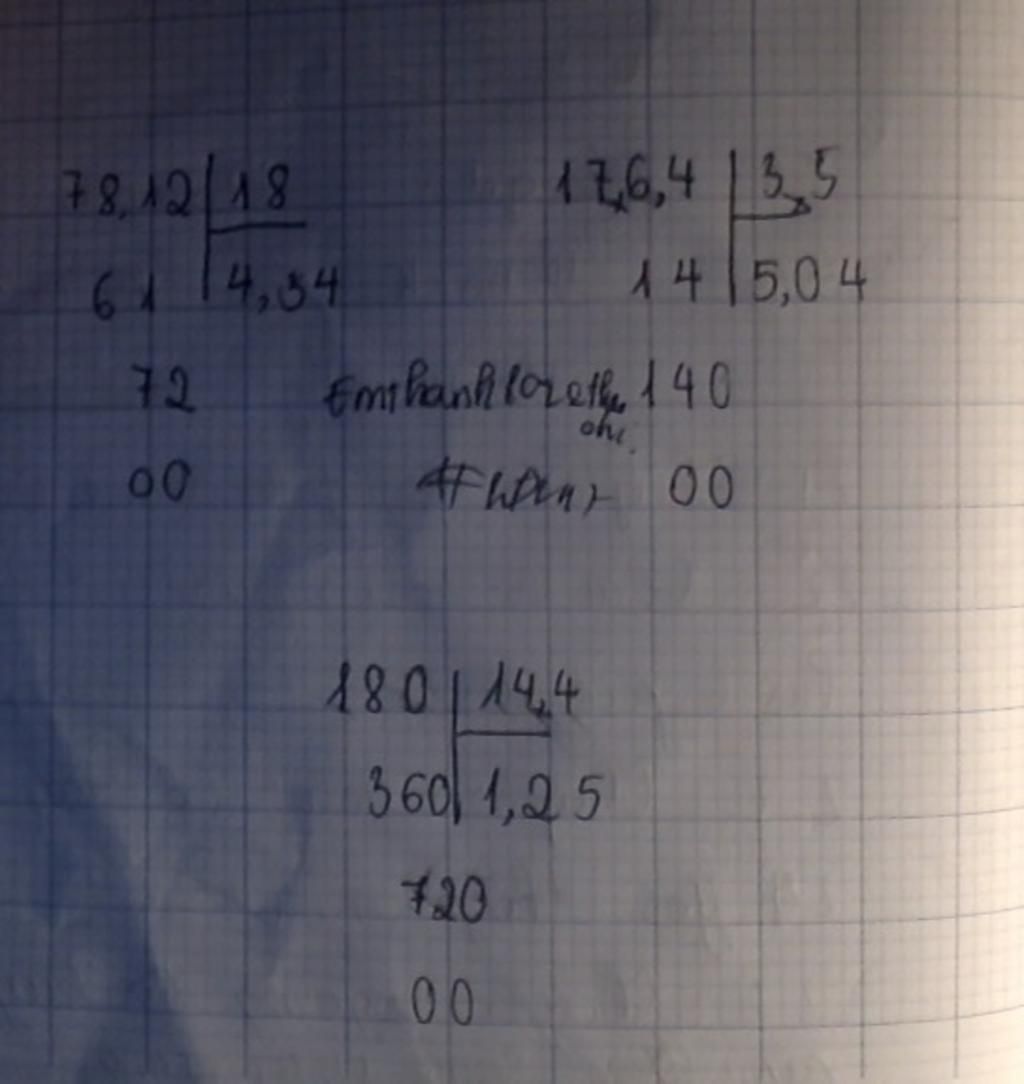 78,12 | 18
61 | 4,34
72
00
17,6,4 | 3,5
14 | 5,04
140
00
180 | 14,4
360 | 1,25
720
00